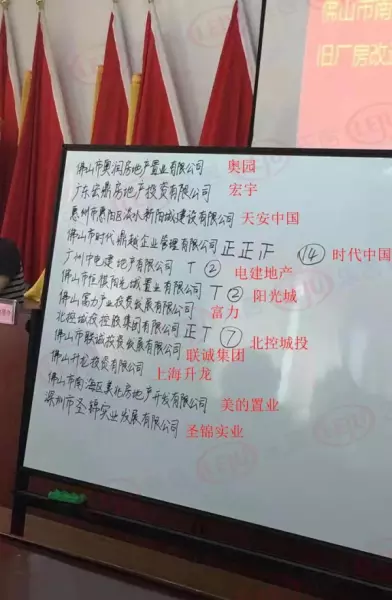 佛山市南
旧厂房改
佛山市奥润房地产置业有限公司 奥园
广东宏鼎房地产投资有限公司 宏宇
惠州市惠阳区淡水新阳城建设有限公司 天安中国
佛山市时代鼎越企业管理有限公司 正正丅 ⑭ 时代中国
广州市电建地产有限公司 丅 ② 电建地产
佛山市恒祺阳光城置业有限公司 丅 ② 阳光城
佛山富力产业投资发展有限公司 富力
北控城投控股集团有限公司 正丅 ⑦ 北控城投
佛山市联诚投资发展有限公司 联诚集团
佛山升龙投资有限公司 上海升龙
佛山市南海区美北房地产开发有限公司 美的置业
深圳市圣锦实业发展有限公司 圣锦实业